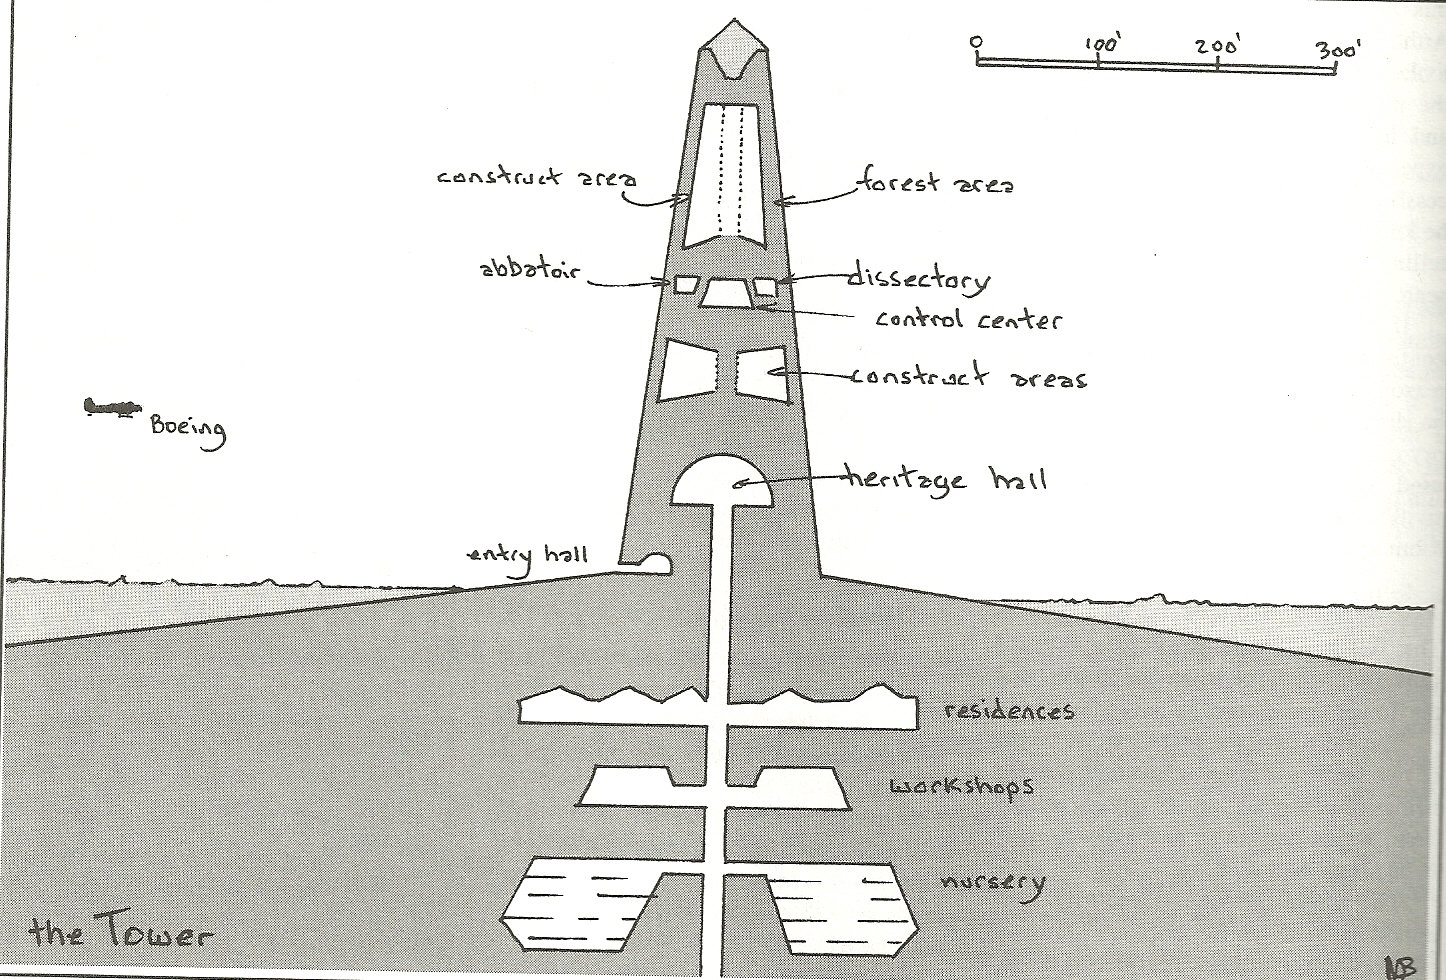 0 100' 200' 300'
construct area
forest area
abbatoir
dissectory
control center
construct areas
Boeing
heritage hall
entry hall
residences
workshops
nursery
the Tower
MB